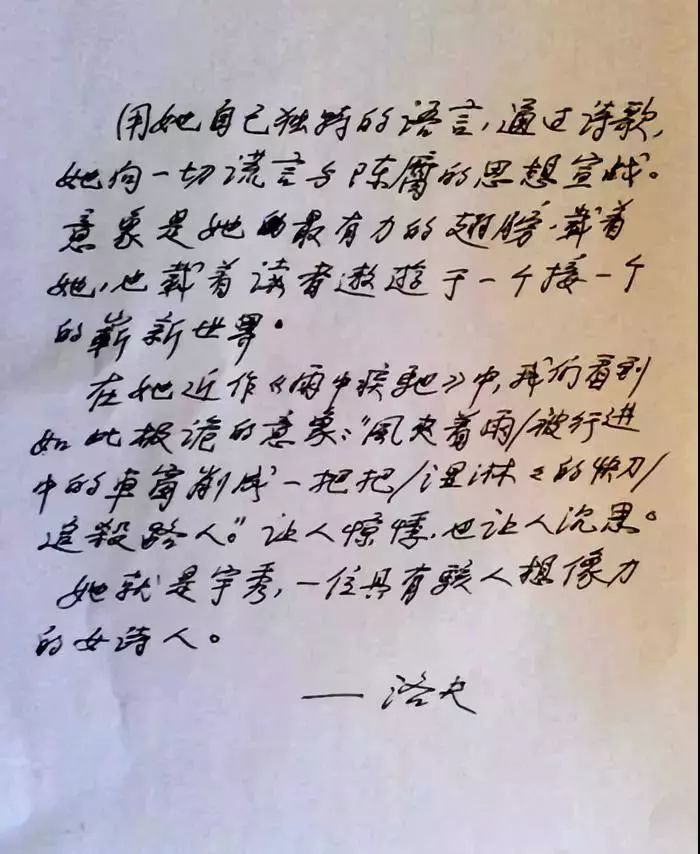 用她自己独特的语言，通过诗歌，
她向一切谎言与陈腐的思想宣战。
意象是她最有力的翅膀，载着
她，也载着读者遨遊于一个接一个
的崭新世界。
在她近作《雨中疾馳》中，我们看到
如此极诡的意象："風夹着雨/被行进
中的車窗削成一把把/湿淋々的快刀/
追殺路人。"让人惊悸，也让人沉思。
她就是宇秀，一位具有骇人想像力
的女诗人。
— 洛夫